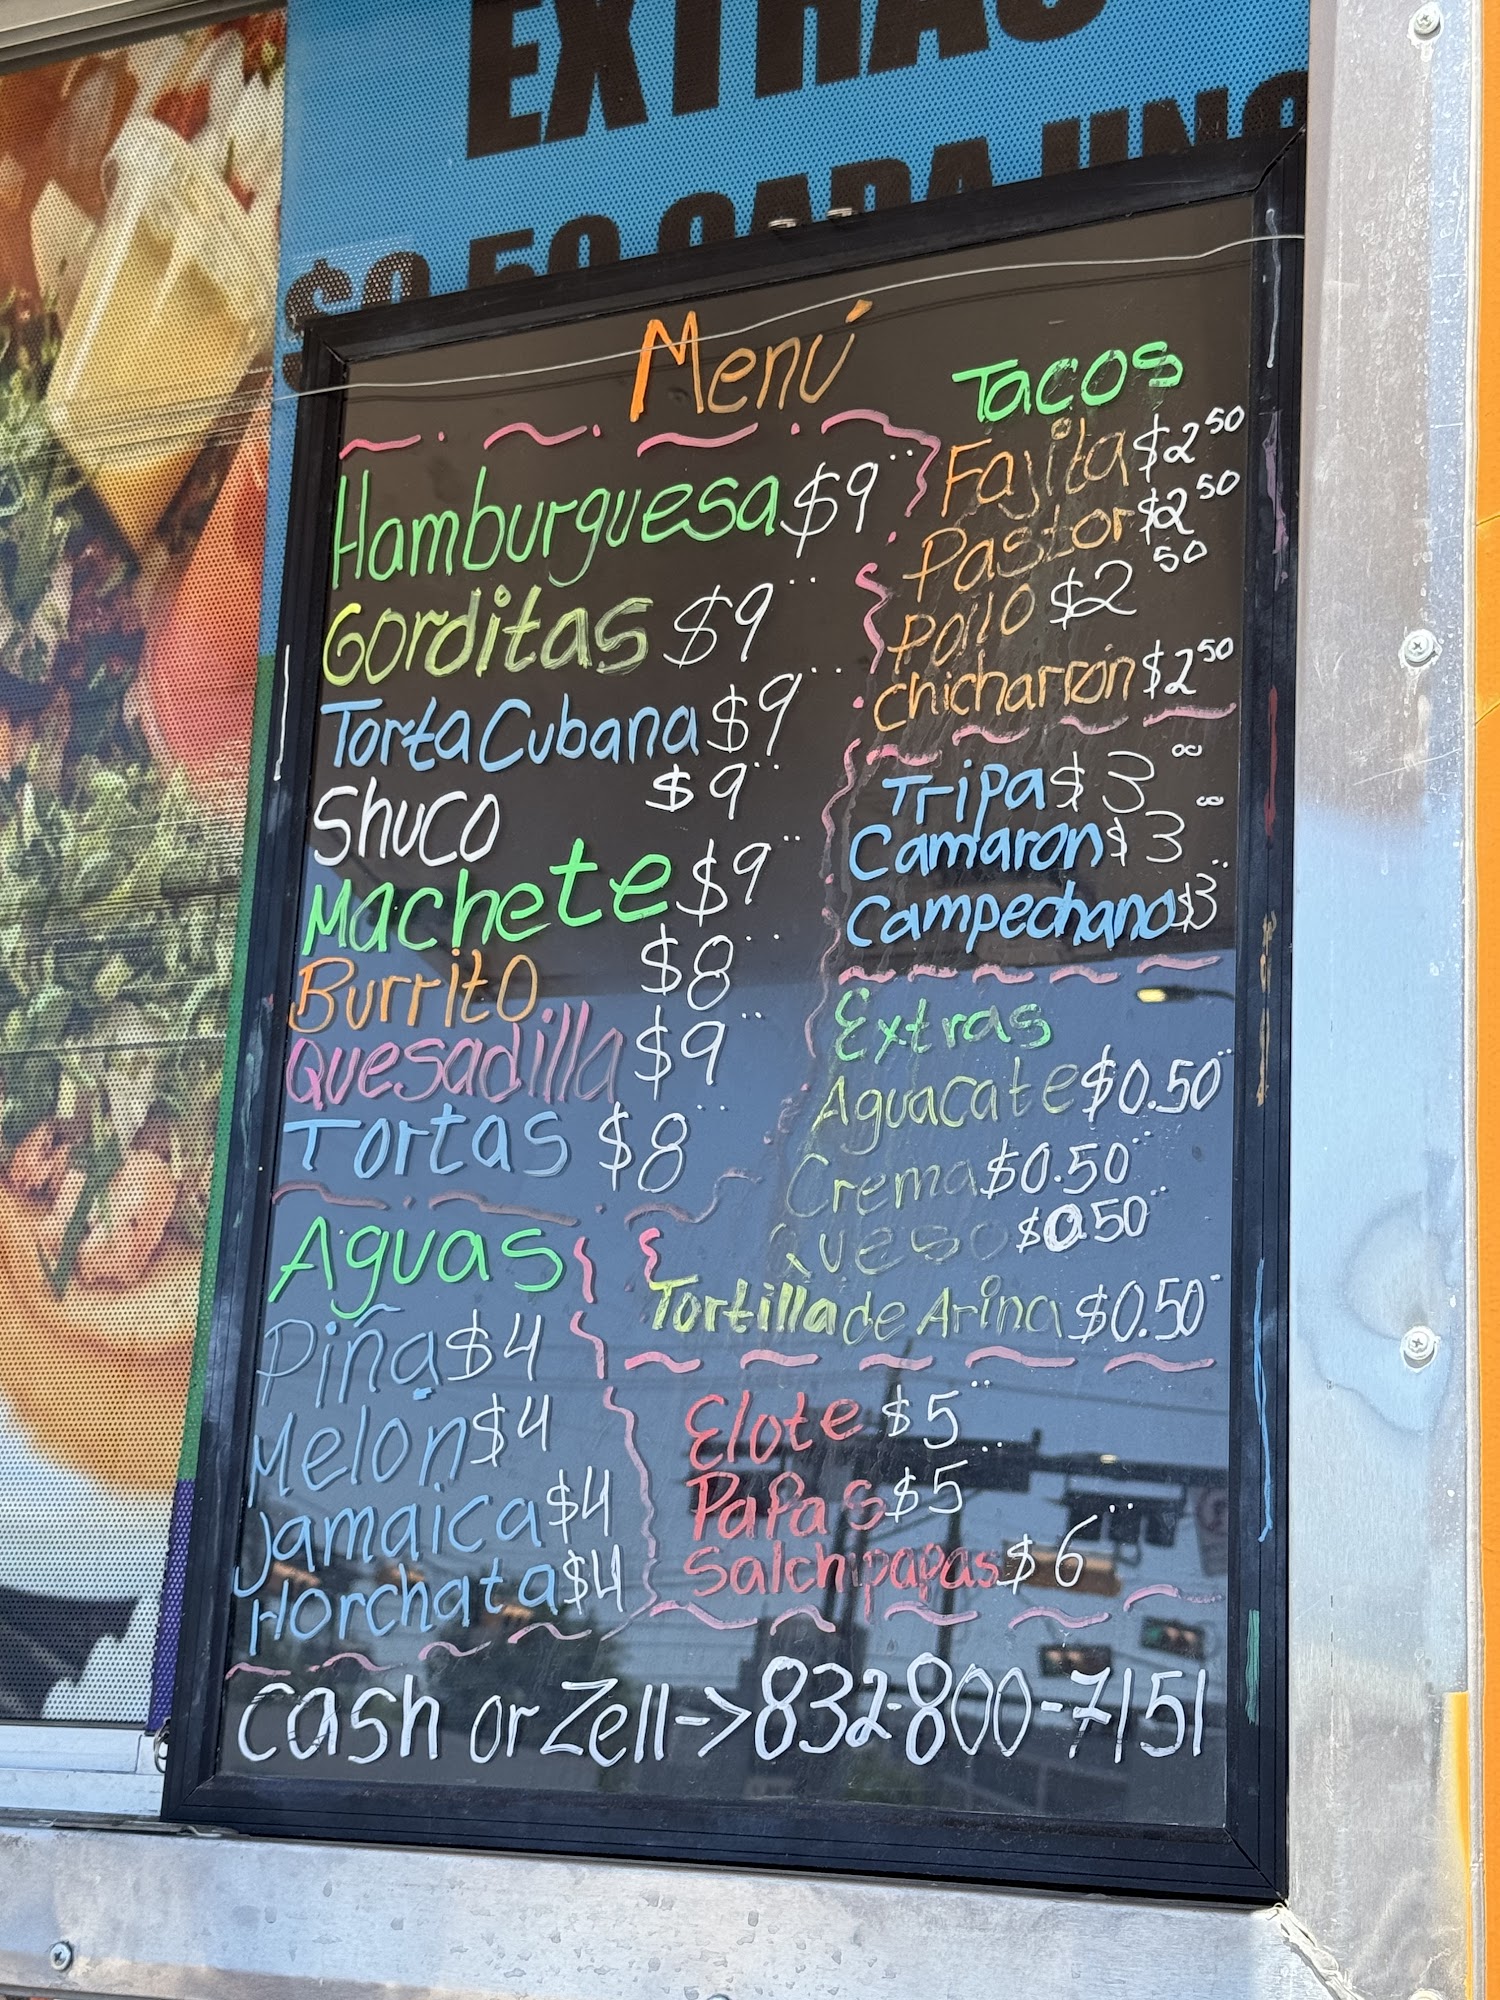 EXTRAS
$0.50 CADA UNO
Menú
Hamburguesa $9
Gorditas $9
Torta Cubana $9
Shuco $9
Machete $9
Burrito $8
Quesadilla $9
Tortas $8
Aguas
Piña $4
Melon $4
Jamaica $4
Horchata $4
Tacos
Fajita $2 50
Pastor $2 50
Pollo $2 50
chicharrón $2 50
Tripa $3 00
Camaron $3 00
Campechano $3
Extras
Aguacate $0.50
Crema $0.50
Queso $0.50
Tortilla de Arina $0.50
Elote $5
Papas $5
Salchipapas $6
cash or Zell -> 832-800-7151